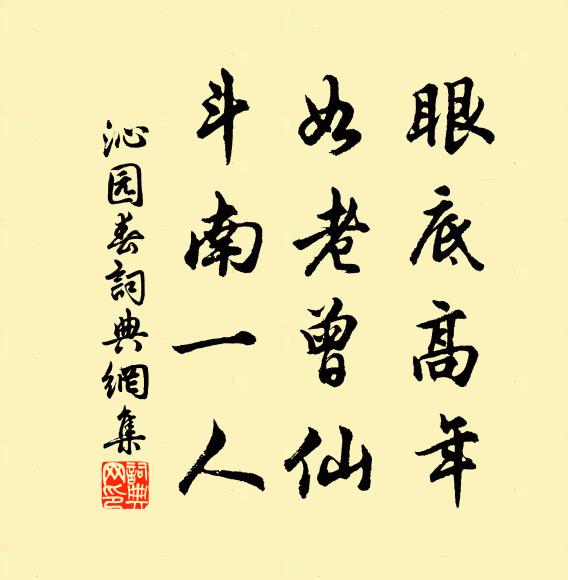 眼底高年
如老曾仙
斗南一人
沁园春詞典網集
詞典网印